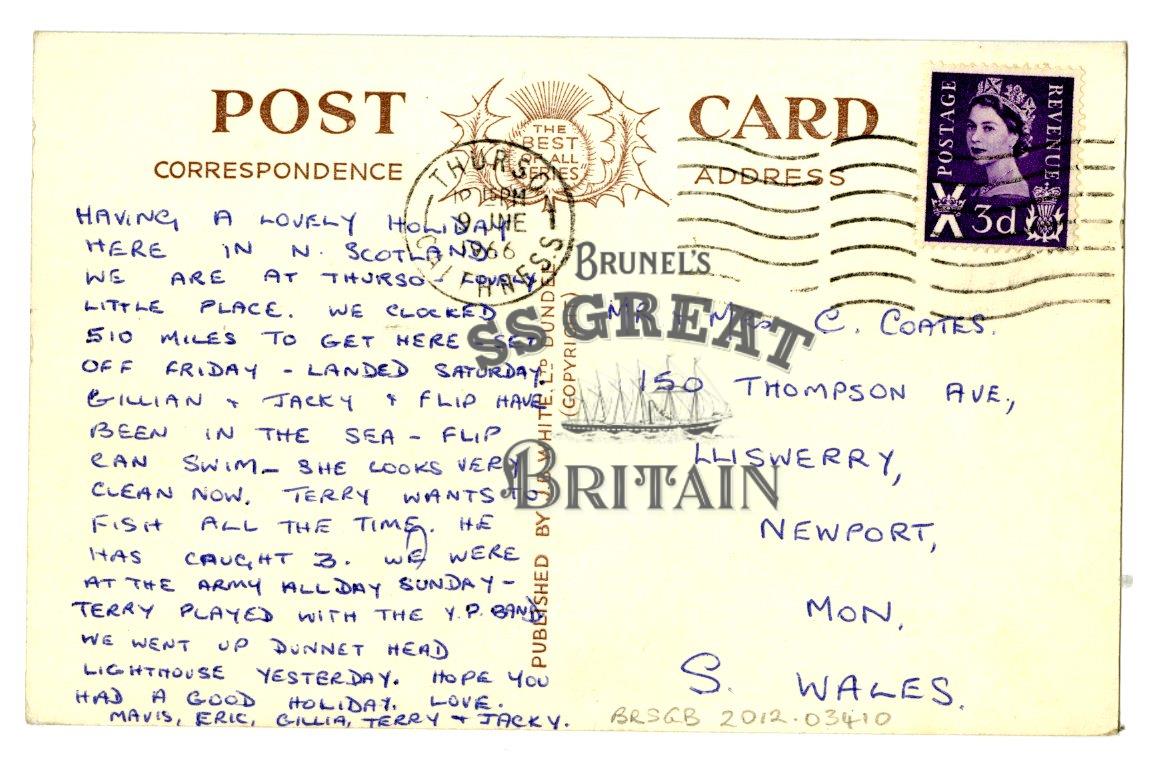 POST CARD
THE
BEST
OF ALL
SERIES
CORRESPONDENCE
ADDRESS
POSTAGE
REVENUE
3d
THURSO
PM
9 JNE
1966
CAITHNESS
HAVING A LOVELY HOLIDAY
HERE IN N. SCOTLAND
WE ARE AT THURSO - LOVELY
LITTLE PLACE. WE CLOCKED
510 MILES TO GET HERE - SET
OFF FRIDAY - LANDED SATURDAY.
GILLIAN + JACKY + FLIP HAVE
BEEN IN THE SEA - FLIP
CAN SWIM - SHE LOOKS VERY
CLEAN NOW. TERRY WANTS TO
FISH ALL THE TIME. HE
HAS CAUGHT 3. WE WERE
AT THE ARMY ALL DAY SUNDAY -
TERRY PLAYED WITH THE Y.P. BAND
WE WENT UP DUNNET HEAD
LIGHTHOUSE YESTERDAY. HOPE YOU
HAD A GOOD HOLIDAY. LOVE.
MAVIS, ERIC, GILLIA, TERRY + JACKY.
PUBLISHED BY J.B. WHITE. LTD DUNDEE
(COPYRIGHT)
BRUNEL'S
SS GREAT
BRITAIN
MR + MRS C. COATES.
150 THOMPSON AVE,
LLISWERRY,
NEWPORT,
MON.
S. WALES.
BRSGB 2012.03410